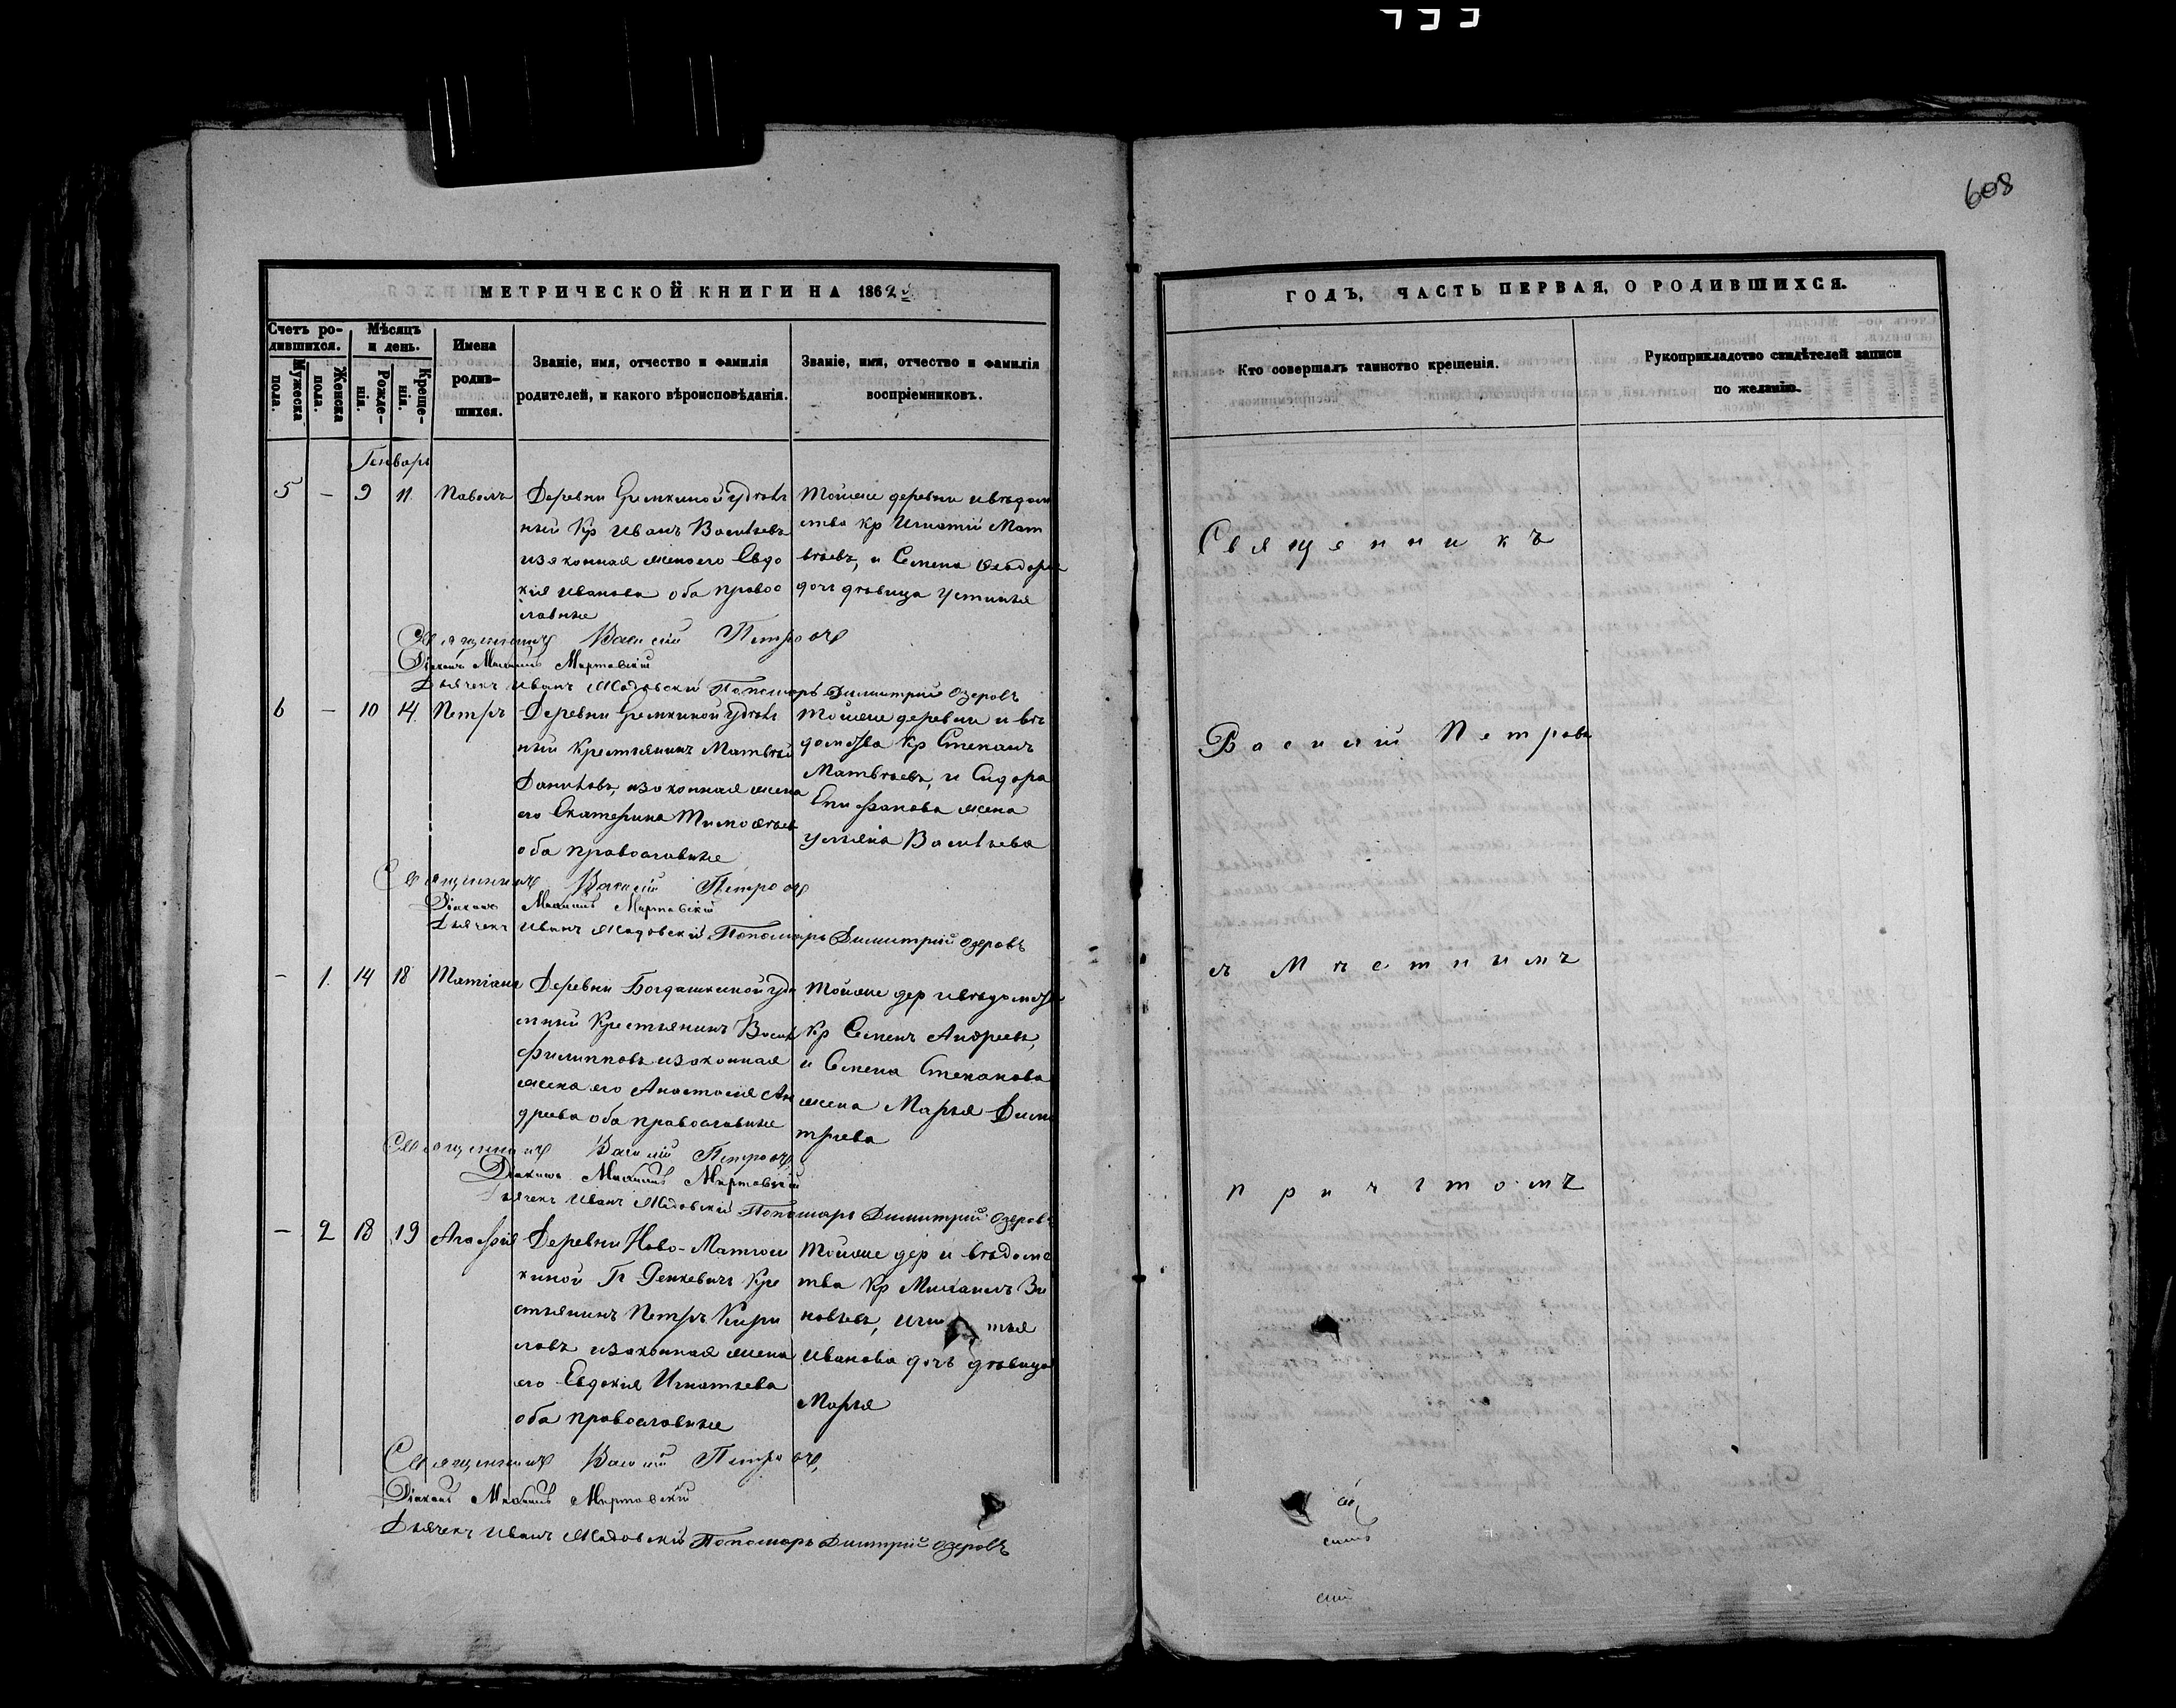 608
МЕТРИЧЕСКОЙ КНИГИ НА 1862 й
Счетъ родившихся.
Мужеска пола.
Женска пола.
Мѣсяцъ и день.
Рожденія.
Крещенія.
Имена родившихся.
Званіе, имя, отчество и фамилія
родителей, и какого вѣроисповѣданія.
Званіе, имя, отчество и фамилія
воспріемниковъ.
Генварь
5 – 9 11. Павелъ
Деревни Еремкиной удѣль
ный Кр Иванъ Васильевъ
и законная жена его Евдо
кія Иванова оба правос
лавные
Тойже деревни и вѣдом
ства Кр Игнатій Мат
вѣевъ, и Семена Ѳеодоро
дочь дѣвица Устинья
Священникъ Василій Петровъ
Діаконъ Михаилъ Миртовскій
Дьячекъ Иванъ Мадовскій Пономарь Димитрій Озеровъ
6 – 10 14. Петръ
Деревни Еремкиной удѣль
ный Крестьянинъ Матвѣй
Даниловъ, и законная жена
его Екатерина Тимоѳѣева
оба православные
Тойже деревни и вѣ
домства Кр Степанъ
Матвѣевъ, и Сидора
Епифанова жена
Ульяна Васильева
Священникъ Василій Петровъ
Діаконъ Михаилъ Миртовскій
Дьячекъ Иванъ Мадовскій Пономарь Димитрій Озеровъ
– 1. 14 18 Татіана
Деревни Богдашкиной удѣ
льный Крестьянинъ Василій
Филипповъ и законная
жена его Анастасія Ан
дреева оба православные
Тойже дер и вѣдомства
Кр Семенъ Андреевъ,
и Семена Степанова
жена Марья Дими
тріева
Священникъ Василій Петровъ
Діаконъ Михаилъ Миртовскій
Дьячекъ Иванъ Мадовскій Пономарь Димитрій Озеровъ
– 2 18 19 Агафія
Деревни Ново-Матюш
киной Кре
стьянинъ Петръ Кири
ловъ и законная жена
его Евдокія Игнатьева
оба православные
Тойже дер и вѣдомс
тва Кр Михаилъ Зи
новьевъ,
Иванова дочь дѣвица
Марья
Священникъ Василій Петровъ
Діаконъ Михаилъ Миртовскій
Дьячекъ Иванъ Мадовскій Пономарь Димитрій Озеровъ
ГОДЪ, ЧАСТЬ ПЕРВАЯ, О РОДИВШИХСЯ.
Кто совершалъ таинство крещенія.
Рукоприкладство свидѣтелей записи
по желанію.
Священникъ
Василій Петровъ
съ Мѣстнымъ
причтомъ